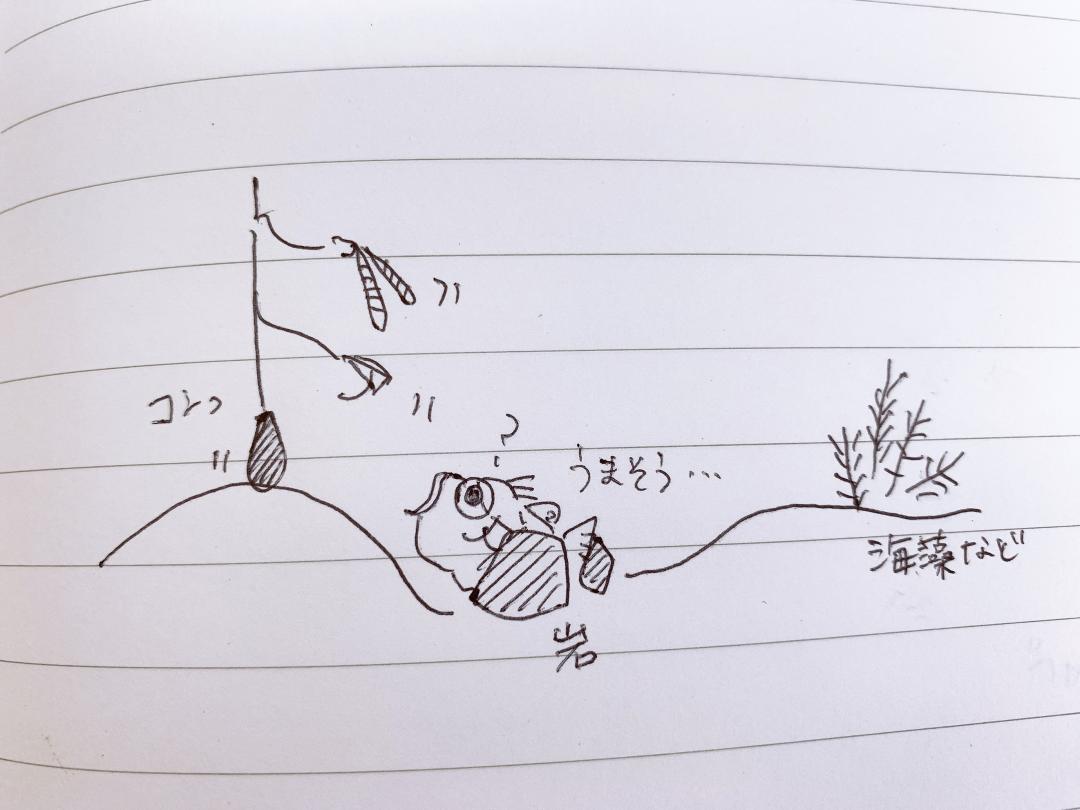 コンっ
?
うまそう…
海藻など
岩